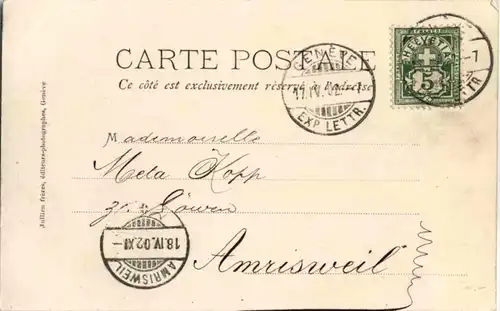 CARTE POSTALE
Ce côté est exclusivement réservé à l'adresse
HELVETIA
FRANCO
5
GENÈVE
17.IV.02
EXP. LETTR.
Mademoiselle
Meta Kopp
zr. Löwen
Amrisweil
18.IV.02.XI-
AMRISWEIL
Jullien frères, éditeurs-photographes, Genève